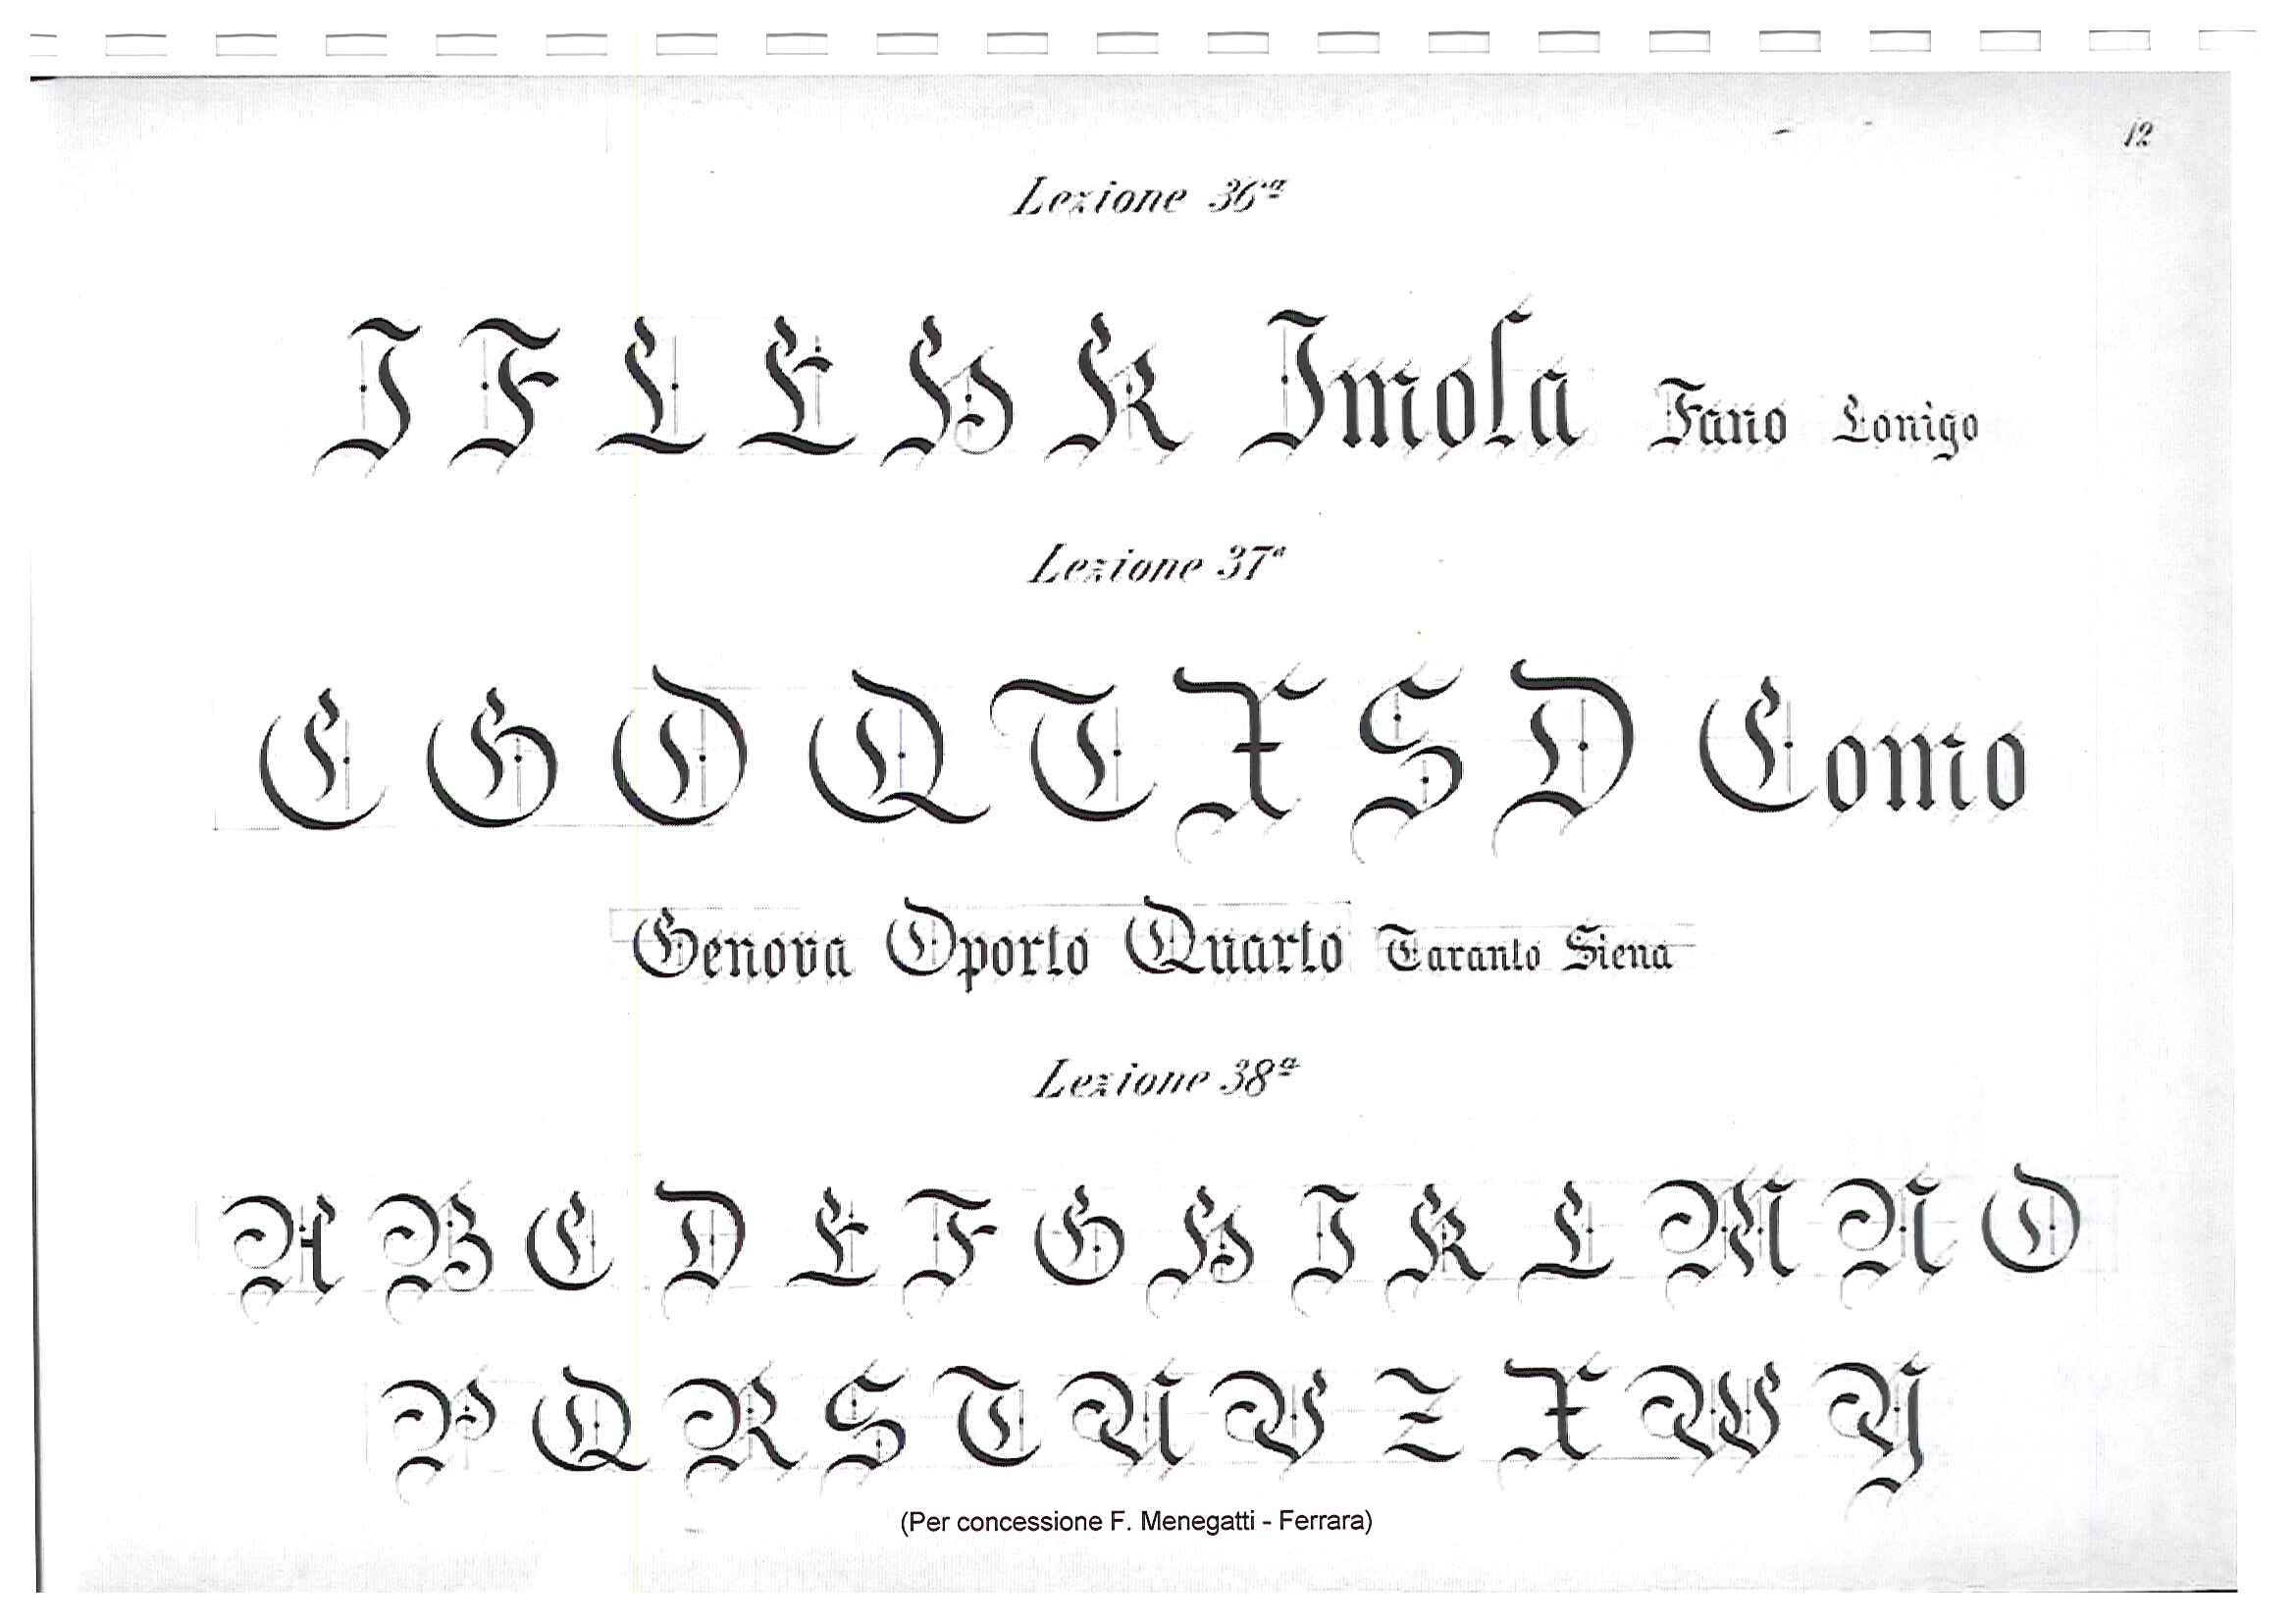 12
Lezione 36.ª
I F L E H K Imola Fano Lonigo
Lezione 37ª
C G O Q T X S D Como
Genova Oporto Quarto Taranto Siena
Lezione 38ª
A B C D E F G H I K L M N O
P Q R S T U V Z X W Y
(Per concessione F. Menegatti - Ferrara)